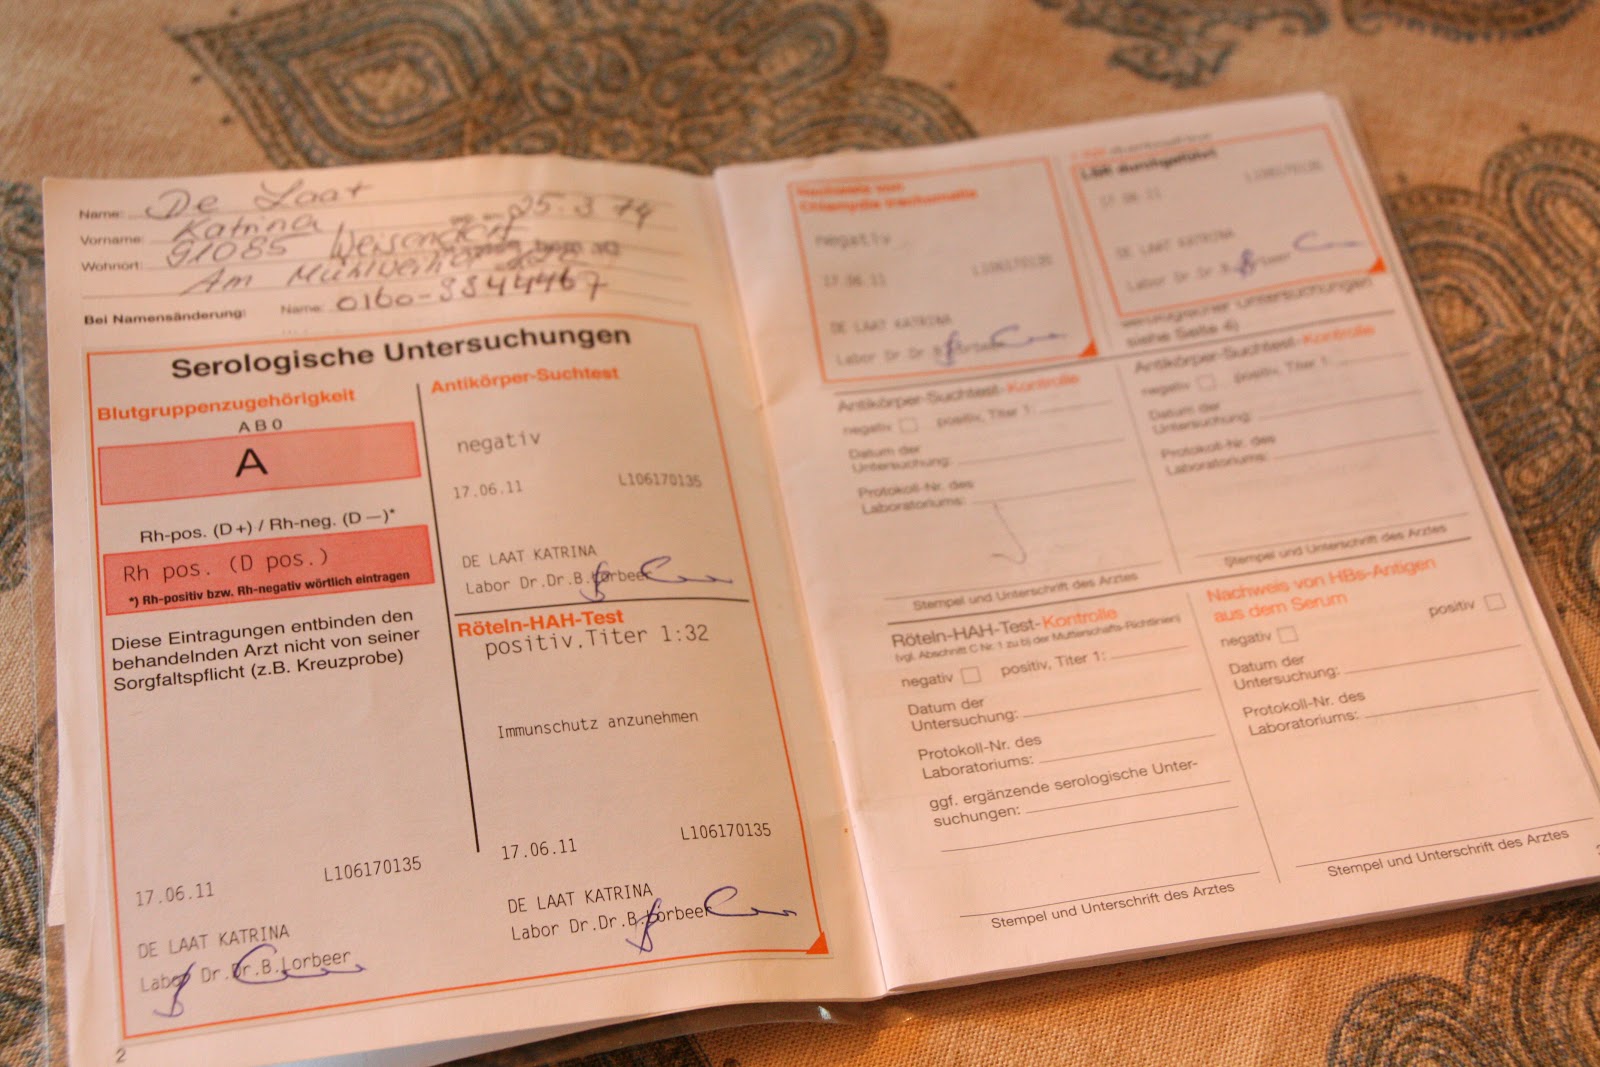 Name: De Laat
Vorname: Katrina geb. am 25.3.74
Wohnort: 91085 Weisendorf
Am Mühlweiher
Bei Namensänderung: Name: 0160-3344467
Serologische Untersuchungen
Blutgruppenzugehörigkeit
A B 0
A
Rh-pos. (D+) / Rh-neg. (D —)*
Rh pos. (D pos.)
*) Rh-positiv bzw. Rh-negativ wörtlich eintragen
Diese Eintragungen entbinden den
behandelnden Arzt nicht von seiner
Sorgfaltspflicht (z.B. Kreuzprobe)
17.06.11 L106170135
DE LAAT KATRINA
Labor Dr.Dr.B.Lorbeer
Antikörper-Suchtest
negativ
17.06.11 L106170135
DE LAAT KATRINA
Labor Dr.Dr.B.Lorbeer
Röteln-HAH-Test
positiv,Titer 1:32
Immunschutz anzunehmen
17.06.11 L106170135
DE LAAT KATRINA
Labor Dr.Dr.B.Lorbeer
2
Nachweis von
Chlamydia trachomatis
negativ
17.06.11 L106170135
DE LAAT KATRINA
Labor Dr.Dr.B.Lorbeer
LSR durchgeführt
17.06.11 L106170135
DE LAAT KATRINA
Labor Dr.Dr.B.Lorbeer
serologischer Untersuchungen
siehe Seite 4)
Antikörper-Suchtest-Kontrolle
negativ positiv, Titer 1:
Datum der
Untersuchung:
Protokoll-Nr. des
Laboratoriums:
Stempel und Unterschrift des Arztes
Antikörper-Suchtest-Kontrolle
negativ positiv, Titer 1:
Datum der
Untersuchung:
Protokoll-Nr. des
Laboratoriums:
Stempel und Unterschrift des Arztes
Röteln-HAH-Test-Kontrolle
(vgl. Abschnitt C Nr. 1 zu b) der Mutterschafts-Richtlinien)
negativ positiv, Titer 1:
Datum der
Untersuchung:
Protokoll-Nr. des
Laboratoriums:
ggf. ergänzende serologische Unter-
suchungen:
Stempel und Unterschrift des Arztes
Nachweis von HBs-Antigen
aus dem Serum
negativ positiv
Datum der
Untersuchung:
Protokoll-Nr. des
Laboratoriums:
Stempel und Unterschrift des Arztes